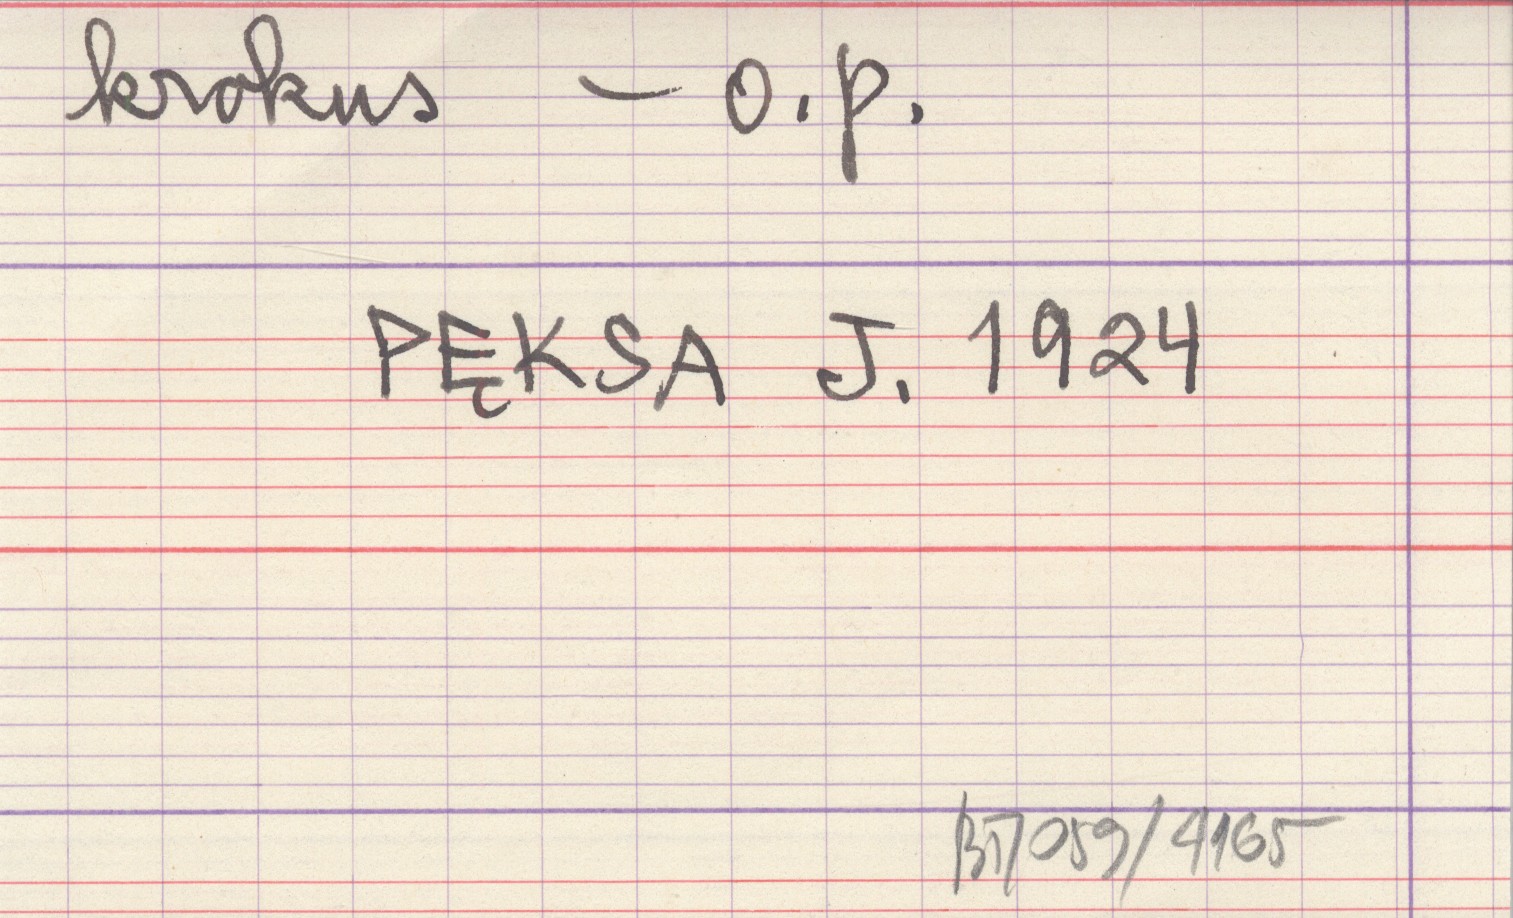 krokus – o.p.
PĘKSA J. 1924
059/4165